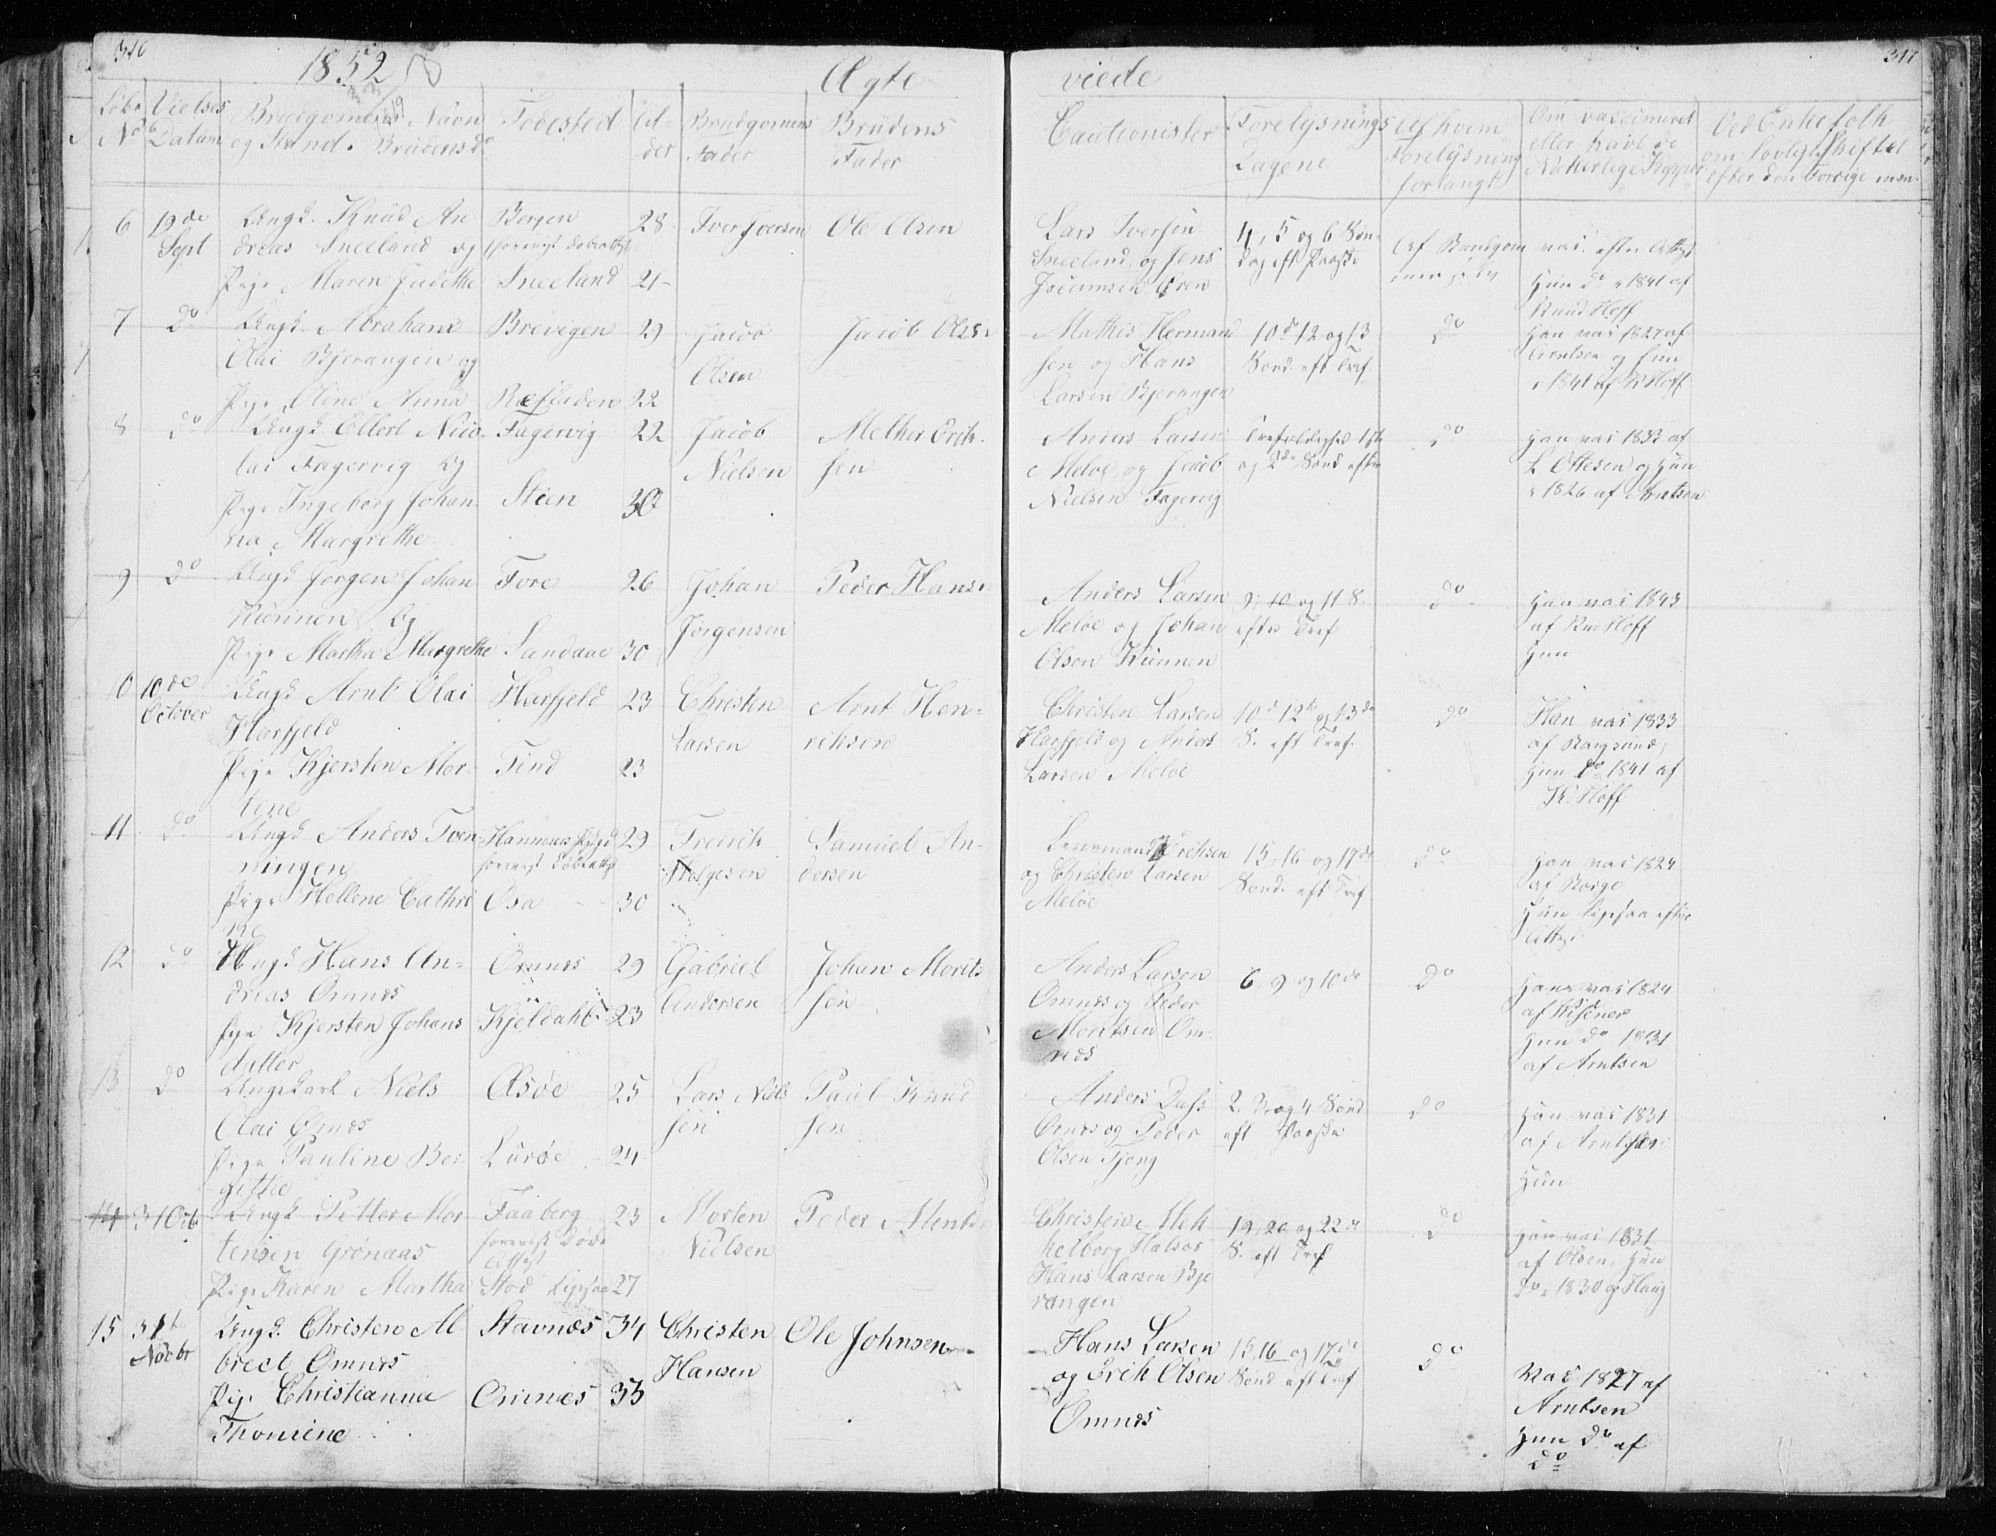 310
1852
Ægte
viede
311
Løbe No
Vielses Datum
Brudgomens Navn og Stand. Brudens do
Fødested
Al-der
Brudgomens Fader
Brudens Fader
Cautionister
Forelysnings Dagene
Af hvem Forelysning forlangt
Om vaccineret eller havt de Naturlige Kopper
Ved Enkefolk om lovligt Skiftet efter den forrige
6 19de Sept
Ungk. Knud An-
dreas Sneeland og
Pige Maren Judithe
Bergen
Sneeland
28
21
Iver Iversen
Ole Olsen
Lars Iversen
Sneeland og Jens
4, 5 og 6 Søn-
dag eft Paaske
Af Brudgom
vac. efter Attest
Hun do 1841 af
Knud Hoff
7 do
Ungk. Abraham
Olai Bjerangen og
Pige Anna
Brevigen
29
22
Jacob
Olsen
Jacob Olsen
Mathis Hermand
sen og Hans
Larsen Bjerangen
10de 12 og 13
Sønd. eft Tref.
do
Han vac 1827 af
Arntsen og hun
1841 af K Hoff
8 do
Ungk. Ellert Nico-
lai Fagervig og
Pige Ingeborg Johan
na Margrethe
Fagervig
Stien
22
30
Jacob
Nielsen
Melker Erik-
sen
Anders Larsen
Meløe og Jacob
Nielsen Fagervig
og 2de Sønd efter
do
Han vac 1832 af
L Ottesen og Hun
1826 af Arntsen
9 do
Ungk Jørgen Johan
Kunnen og
Pige Martha Margrethe
Fore
Sandaae
26
30
Johan
Jørgensen
Peder Hans.
Anders Larsen
Meløe og Johan
Olsen Kunnen
9, 10 og 11 S.
efter Tref
do
Han vac 1843
af Hoff
Hun
10 10de October
Ungk Arnt Olai
Harfjeld
Pige Kjersten Mor-
tine
Harfjeld
Find
23
23
Christen
Larsen
Arnt Hen-
riksen
Christen Larsen
Harfjeld og Anders
Larsen Meløe
10de 12te og 13de
S. eft Tref.
do
Han vac 1833
af
Hun do 1841 af
K. Hoff
11 do
Ungk Anders Tven-
ningen
Pige Hellene Cathri
ne
Osa
29
30
Fredrik
Helgesen
Samuel An-
dersen
Lensmand Eriksen
og Christen Larsen
Meløe
15, 16 og 17de
Sønd. eft Tref
do
Han vac 1824
af Borge
Hun ligesaa efter
Attest
12 do
Ungk Hans An-
dreas Ørnnes
Pige Kjersten Johans
datter
Ørnnes
Kjeldahl
29
23
Gabriel
Andersen
Johan Morits
sen
Anders Larsen
Ørnnes og Peder
Moritsen Ørn-
nes
6, 9 og 10de
do
Hans vac 1824
af
Hun do 1831
af Arntsen
13 do
Ungekarl Niels
Olai Ørnes
Pige Pauline Ber-
gitte
Æsøe
Lurøe
25
24
Lars Niels
sen
Paul Knud
sen
Anders Dass
Ørnes og Peder
Olsen Tjong
2. 3 og 4 Sønd
eft Paaske
do
Han vac 1831
af Arntsen
Hun
14 31 Octb
Ungk Petter Mor
tensen Grønaas
Pige Karen Martha
Faaberg
Stod ligesaa
23
27
Morten
Nielsen
Peder Ments
Christen Mek
kelborg Halsaa
Hans Larsen Bje
rangen
19, 20 og 22de
S. eft Tref
do
Han vac 1831
af Olsen, Hun
do 1830 af Haug
15
Novbr
Ungk. Christen Al-
brect Ørnnes
Pige Christianna
Thomine
Stavnæs
Ørnnæs
34
33
Christen
Hansen
Ole Johnsen
Hans Larsen
og Erik Olsen
Ørnnes
15, 16 og 17de
Sønd eft Tref
do
Vac 1827 af
Arntsen
Hun do af
do